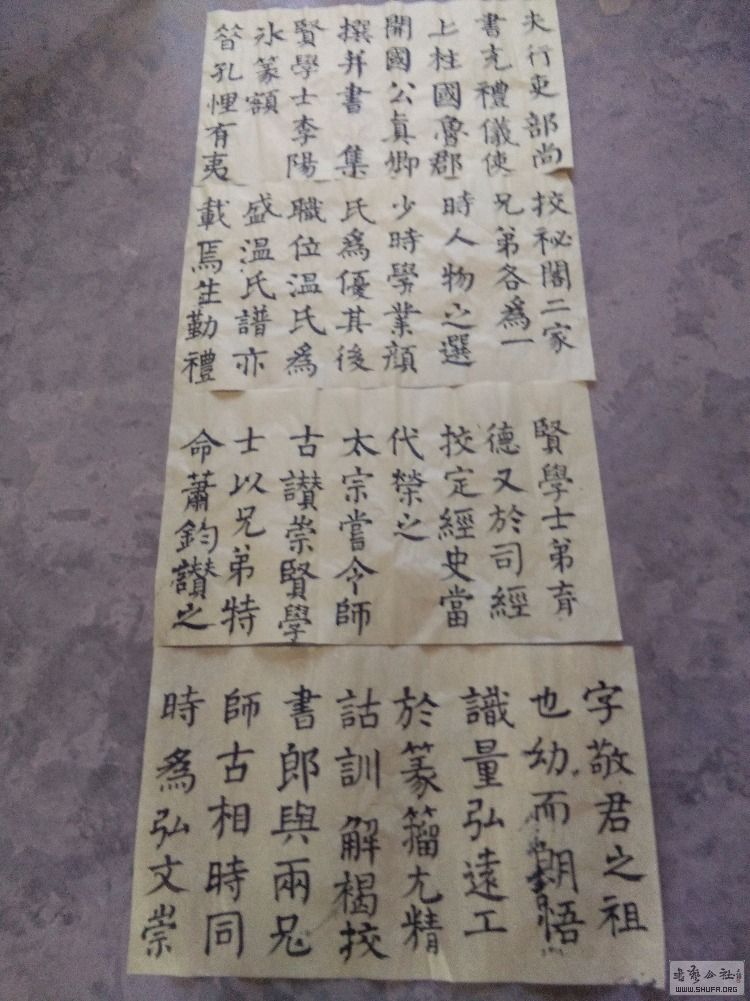 夫行吏部尚
書充禮儀使
上柱國魯郡
開國公真卿
撰并書 集
賢學士李陽
冰篆額
昝孔悝有夷
挍祕閣二家
兄弟各為一
時人物之選
少時學業顔
氏為優其後
職位温氏為
盛温氏譜亦
載焉生勤禮
賢學士弟育
德又於司經
挍定經史當
代榮之
太宗嘗令師
古讃崇賢學
士以兄弟特
命蕭鈞讃之
字敬君之祖
也幼而朗悟
識量弘遠工
於篆籀尤精
詁訓 解褐挍
書郎與兩兄
師古相時同
時為弘文崇
WWW.SHUFA.ORG